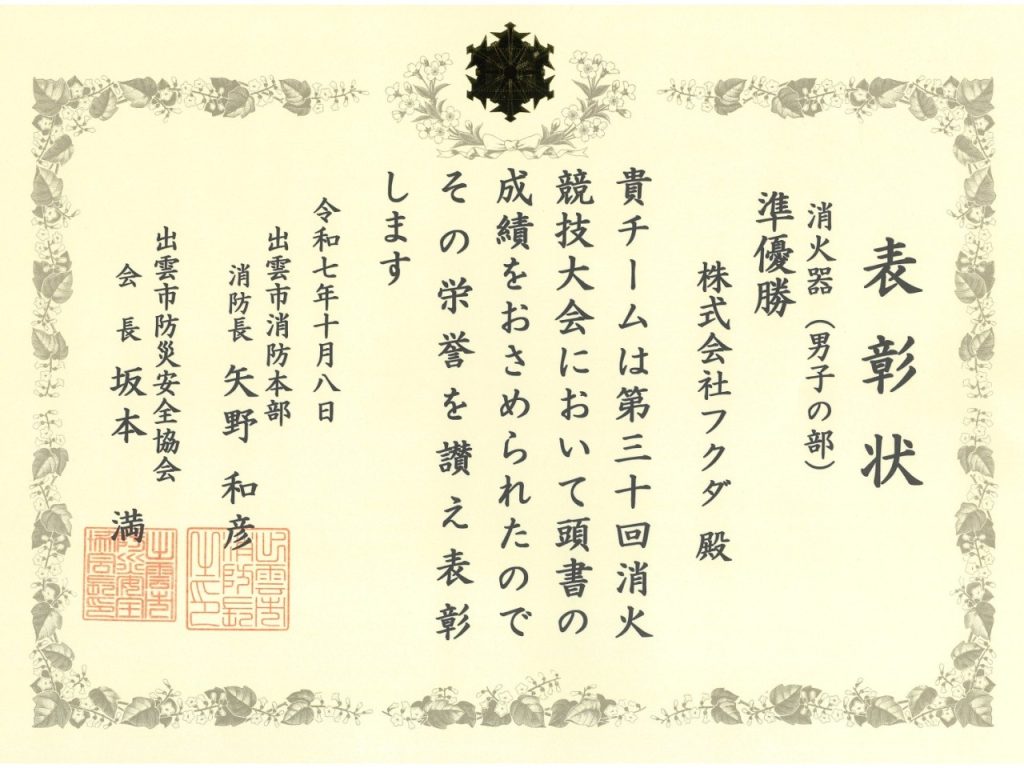 表彰状
消火器（男子の部）
準優勝
株式会社フクダ 殿
貴チームは第三十回消火
競技大会において頭書の
成績をおさめられたので
その栄誉を讃え表彰
します
令和七年十月八日
出雲市消防本部
消防長 矢野 和彦
出雲市防災安全協会
会長 坂本 満
出雲市
消防長
之印
出雲市
防災安全
協会長印